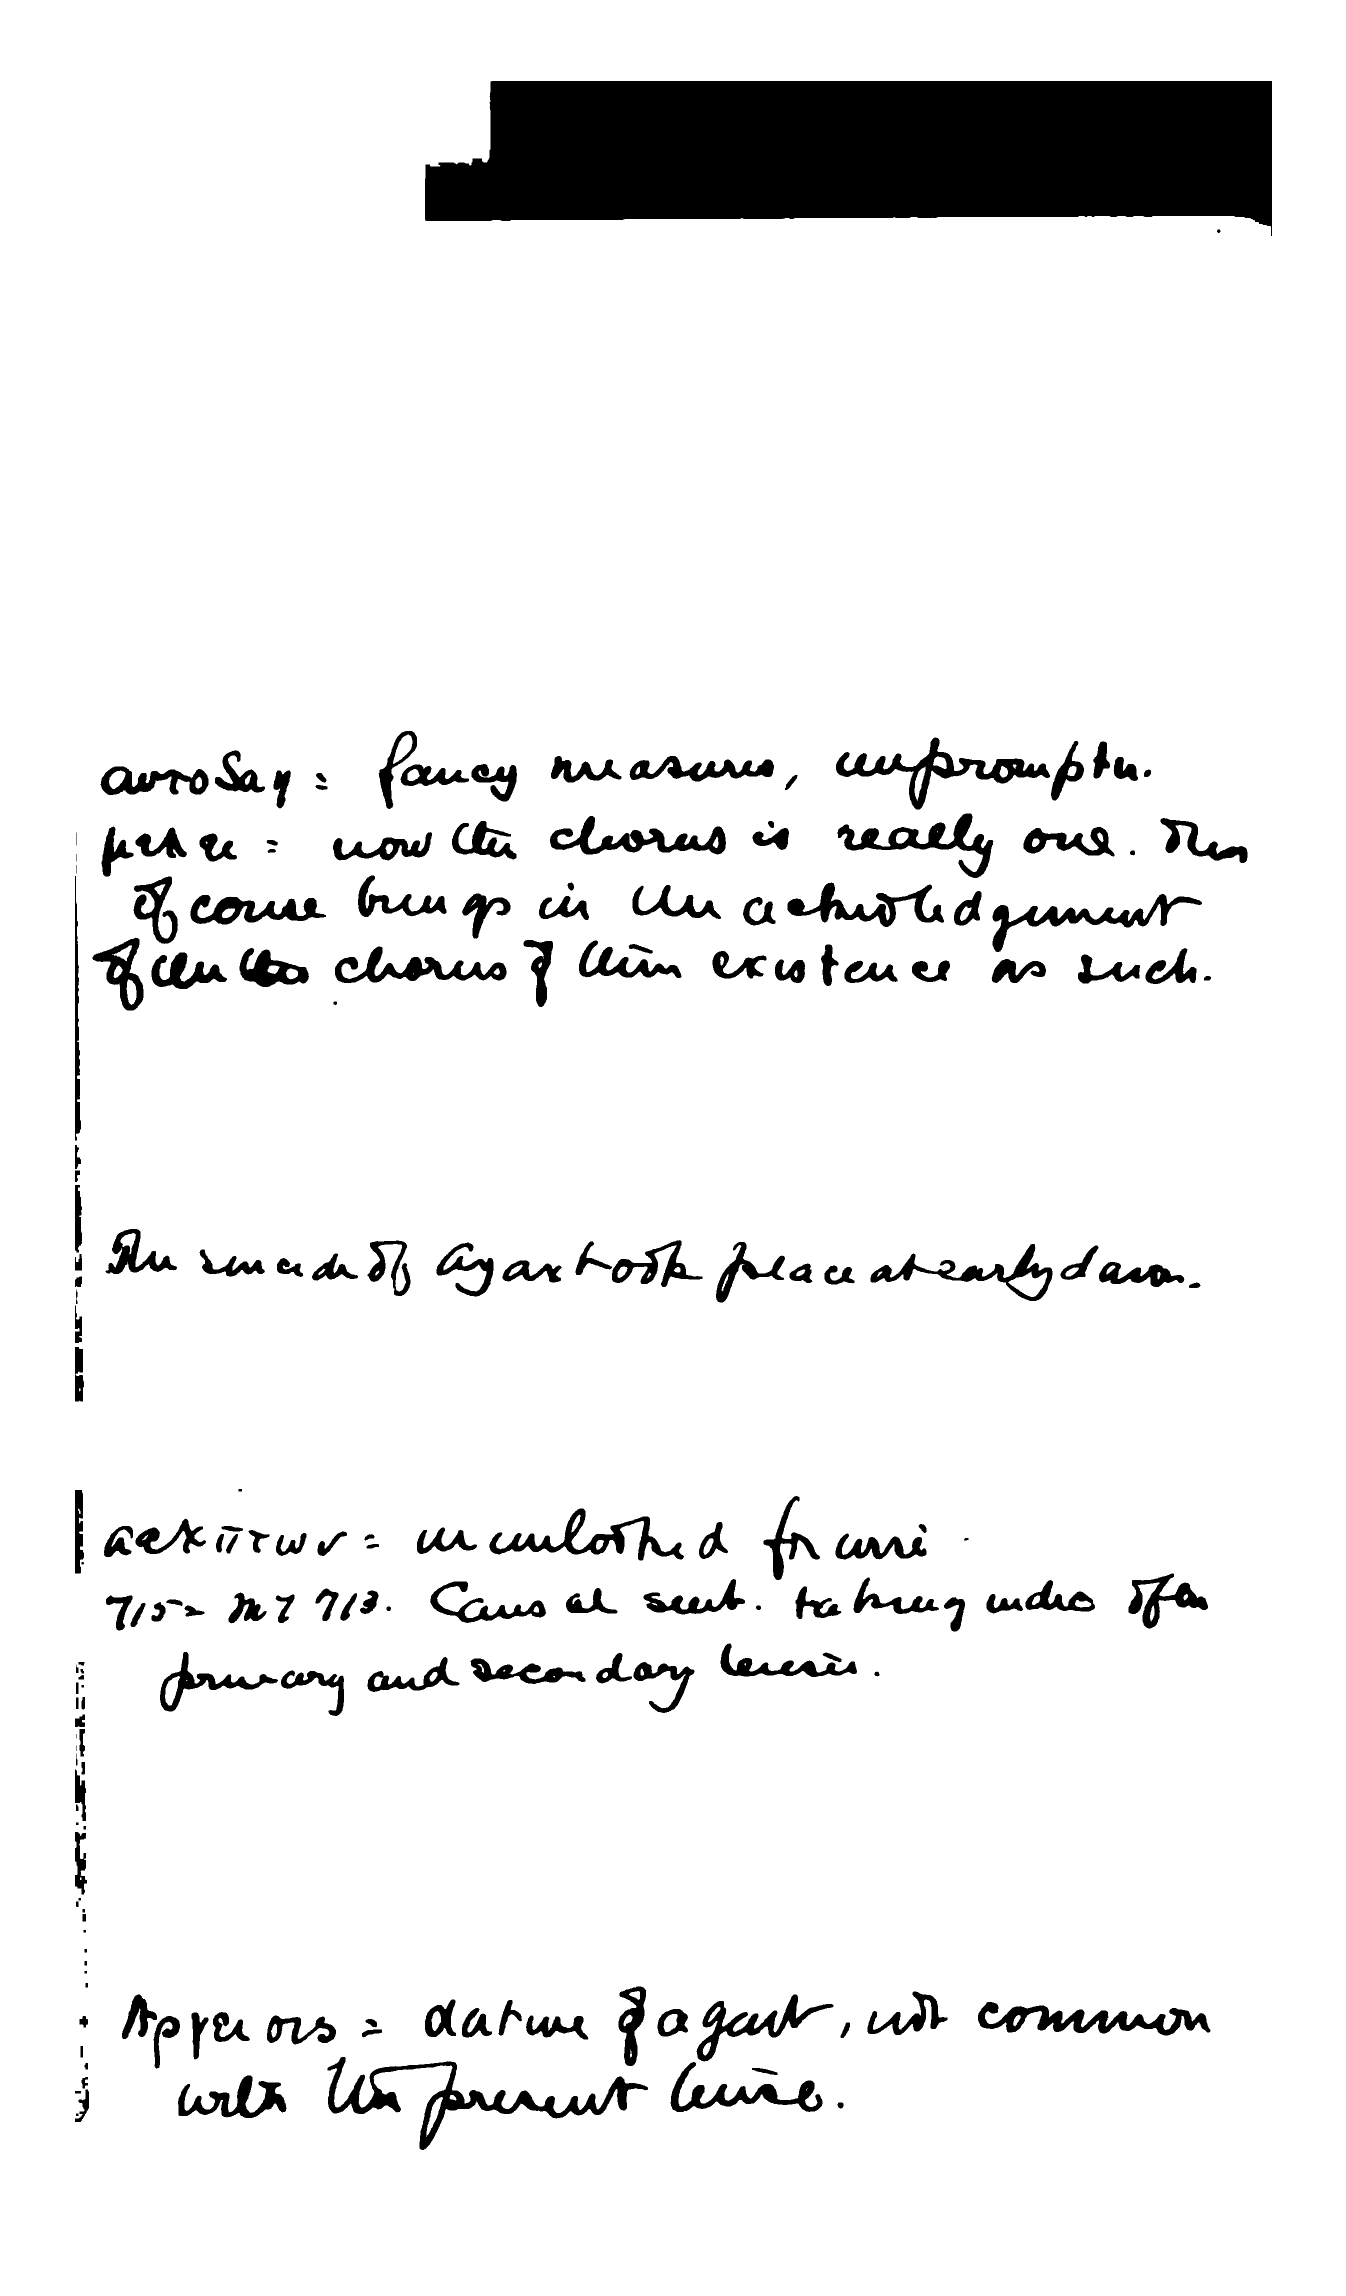 αυτοδαη = fancy measures, impromptu.
μελει = now the chorus is really one. This
of course brings in the acknowledgement
of the chorus of their existence as such.
The suicide of Ajax took place at early dawn.
αελπτων = unlooked for
715 = 713. Causal sent. taking indic often
primary and secondary tenses.
Αργειοις = dative of agent, not common
with the present tense.